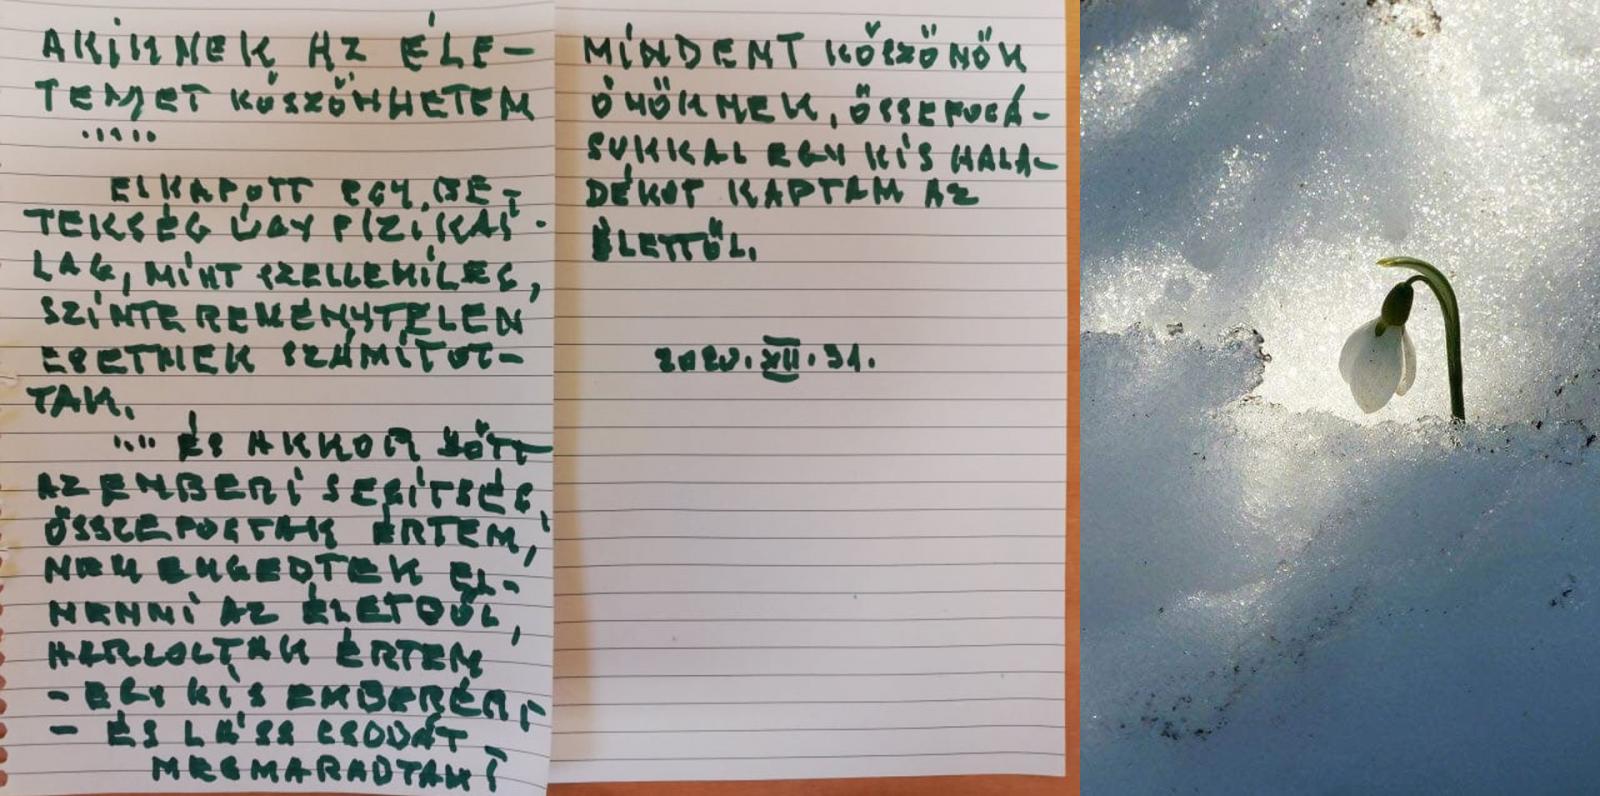 AKIKNEK AZ ÉLE-
TEMET KÖSZÖNHETEM
.....
ELKAPOTT EGY BE-
TEKSÉG ÚGY FIZIKAI-
LAG, MINT SZELLEMILEG,
SZINTE REMÉNYTELEN
ESETNEK SZÁMÍTOT-
TAK.
.... ÉS AKKOR JÖTT
AZ EMBERI SEGÍTSÉG,
ÖSSZEFOGTAK ÉRTEM,
NEM ENGEDTEK EL-
MENNI AZ ÉLETBŐL,
HARCOLTAK ÉRTEM
- EGY KIS EMBERÉRT,
- ÉS LÁSS CSODÁT
MEGMARADTAM!
MINDENT KÖSZÖNÖK
ÖNÖKNEK, ÖSSEFOGÁ-
SUKKAL EGY KIS HALA-
DÉKOT KAPTAM AZ
ÉLETTŐL.
2020.XII.31.